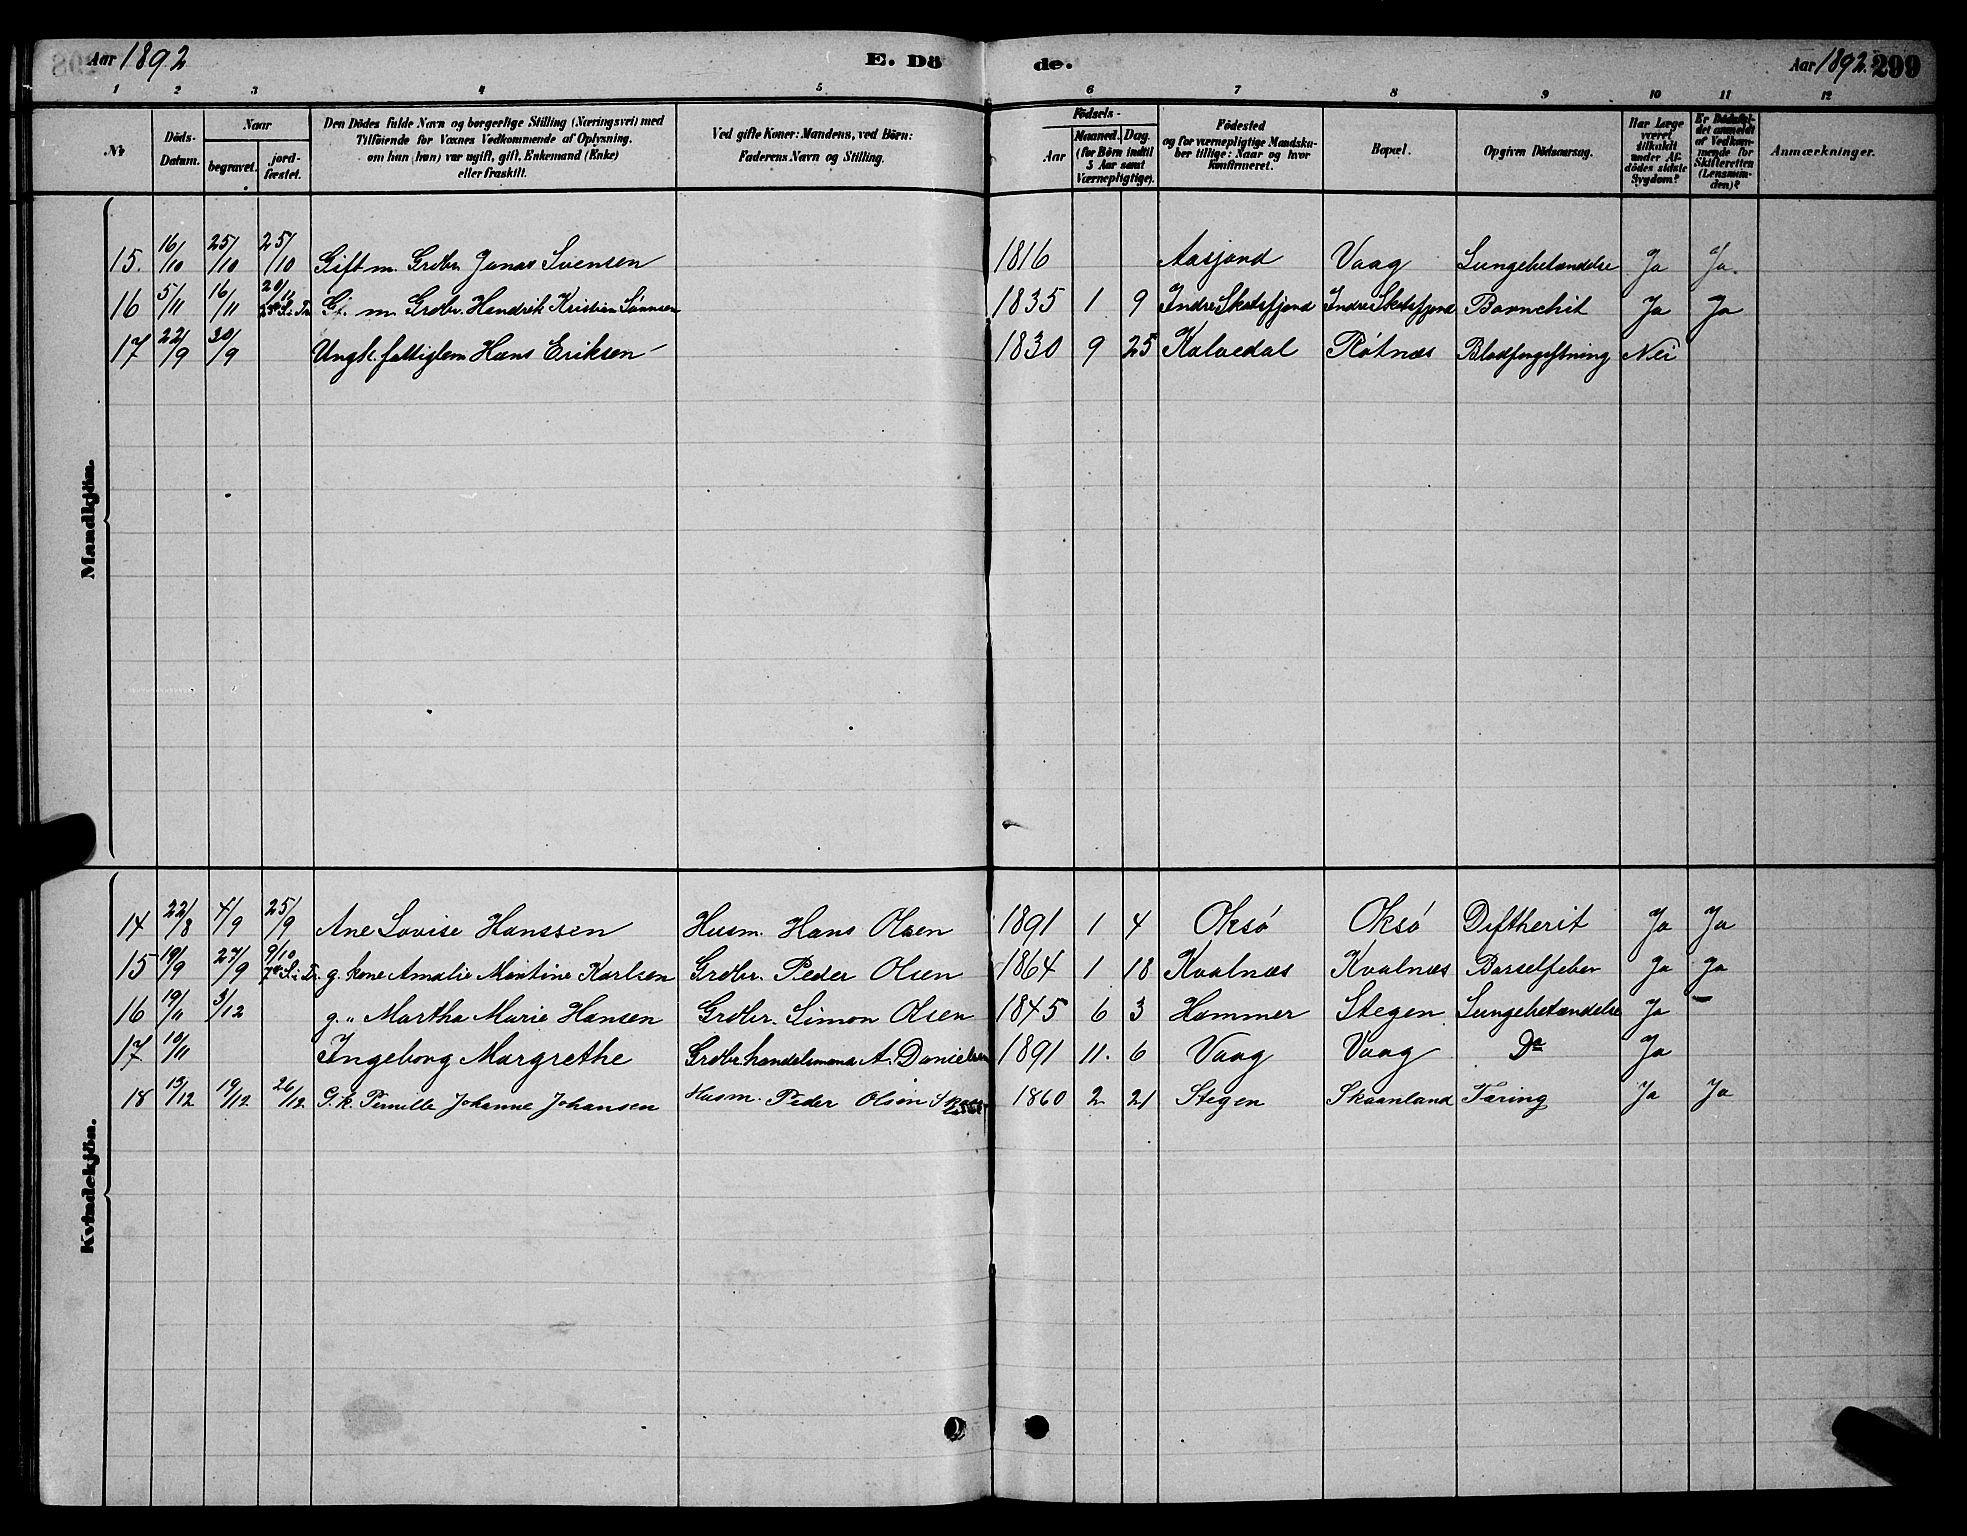 Aar 1892 E. Dö de. Aar 1892. 299
1 2 3 4 5 6 7 8 9 10 11 12
Nr.
Döds-Datum.
Naar
begravet.
jord-fæstet.
Den Dödes fulde Navn og borgerlige Stilling (Næringsvei) med
Tilföiende for Voxnes Vedkommende af Oplysning,
om han (hun) var ugift, gift, Enkemand (Enke)
eller fraskilt.
Ved gifte Koner: Mandens, ved Börn:
Faderens Navn og Stilling.
Födsels-
Aar
Maaned. Dag.
(for Börn indtil
5 Aar samt
Værnepligtige).
Födested
og for værnepligtige Mandska-
ber tillige: Naar og hvor
konfirmeret.
Bopæl.
Opgiven Dödsaarsag.
Har Læge
været
tilkaldt
under Af-
dödes sidste
Sygdom?
Er Dödsfal-
det anmeldt
af Vedkom-
mende for
Skifteretten
(Lensman-
den)?
Anmærkninger.
Mandkjön.
15. 16/10 25/10 25/10 Gift m. Grdbr. Jonas Svensen 1816 Aasjord Vaag Lungebetændelse Ja Ja.
16 5/11 16/11 20/11 Gt. m. Grdbr. Hendrik Kristian Sønnsen 1835 1 9 Indre Skotsfjord Indre Skotsfjord Bronchit Ja Ja
17 22/9 30/9 Ungk. fattiglem Hans Eriksen 1830 9 25 Kalvedal Røtnæs Blodforgiftning Nei
Kvindekjön.
14 22/8 4/9 25/9 Ane Lovise Hanssen Husm. Hans Olsen 1891 1 4 Oksø Oksø Diftherit Ja Ja
15 19/9 27/9 9/10 g. kone Amalie Martine Karlsen Grdbr. Peder Olsen 1864 1 18 Kvalnæs Kvalnæs Barselfeber Ja Ja
16 19/11 3/12 g. " Martha Marie Hansen Grdbr. Simon Olsen 1845 6 3 Hammer Stegen Lungebetændelse Ja –
17 10/11 Ingeborg Margrethe Grdbr. handelsmand A. Danielsen 1891 11. 6 Vaag Vaag Do Ja
18 13/12 19/12 26/12 G. k. Pernille Johanne Johansen Husm. Peder Olsen 1860 2 21 Stegen Skaanland Tæring Ja Ja